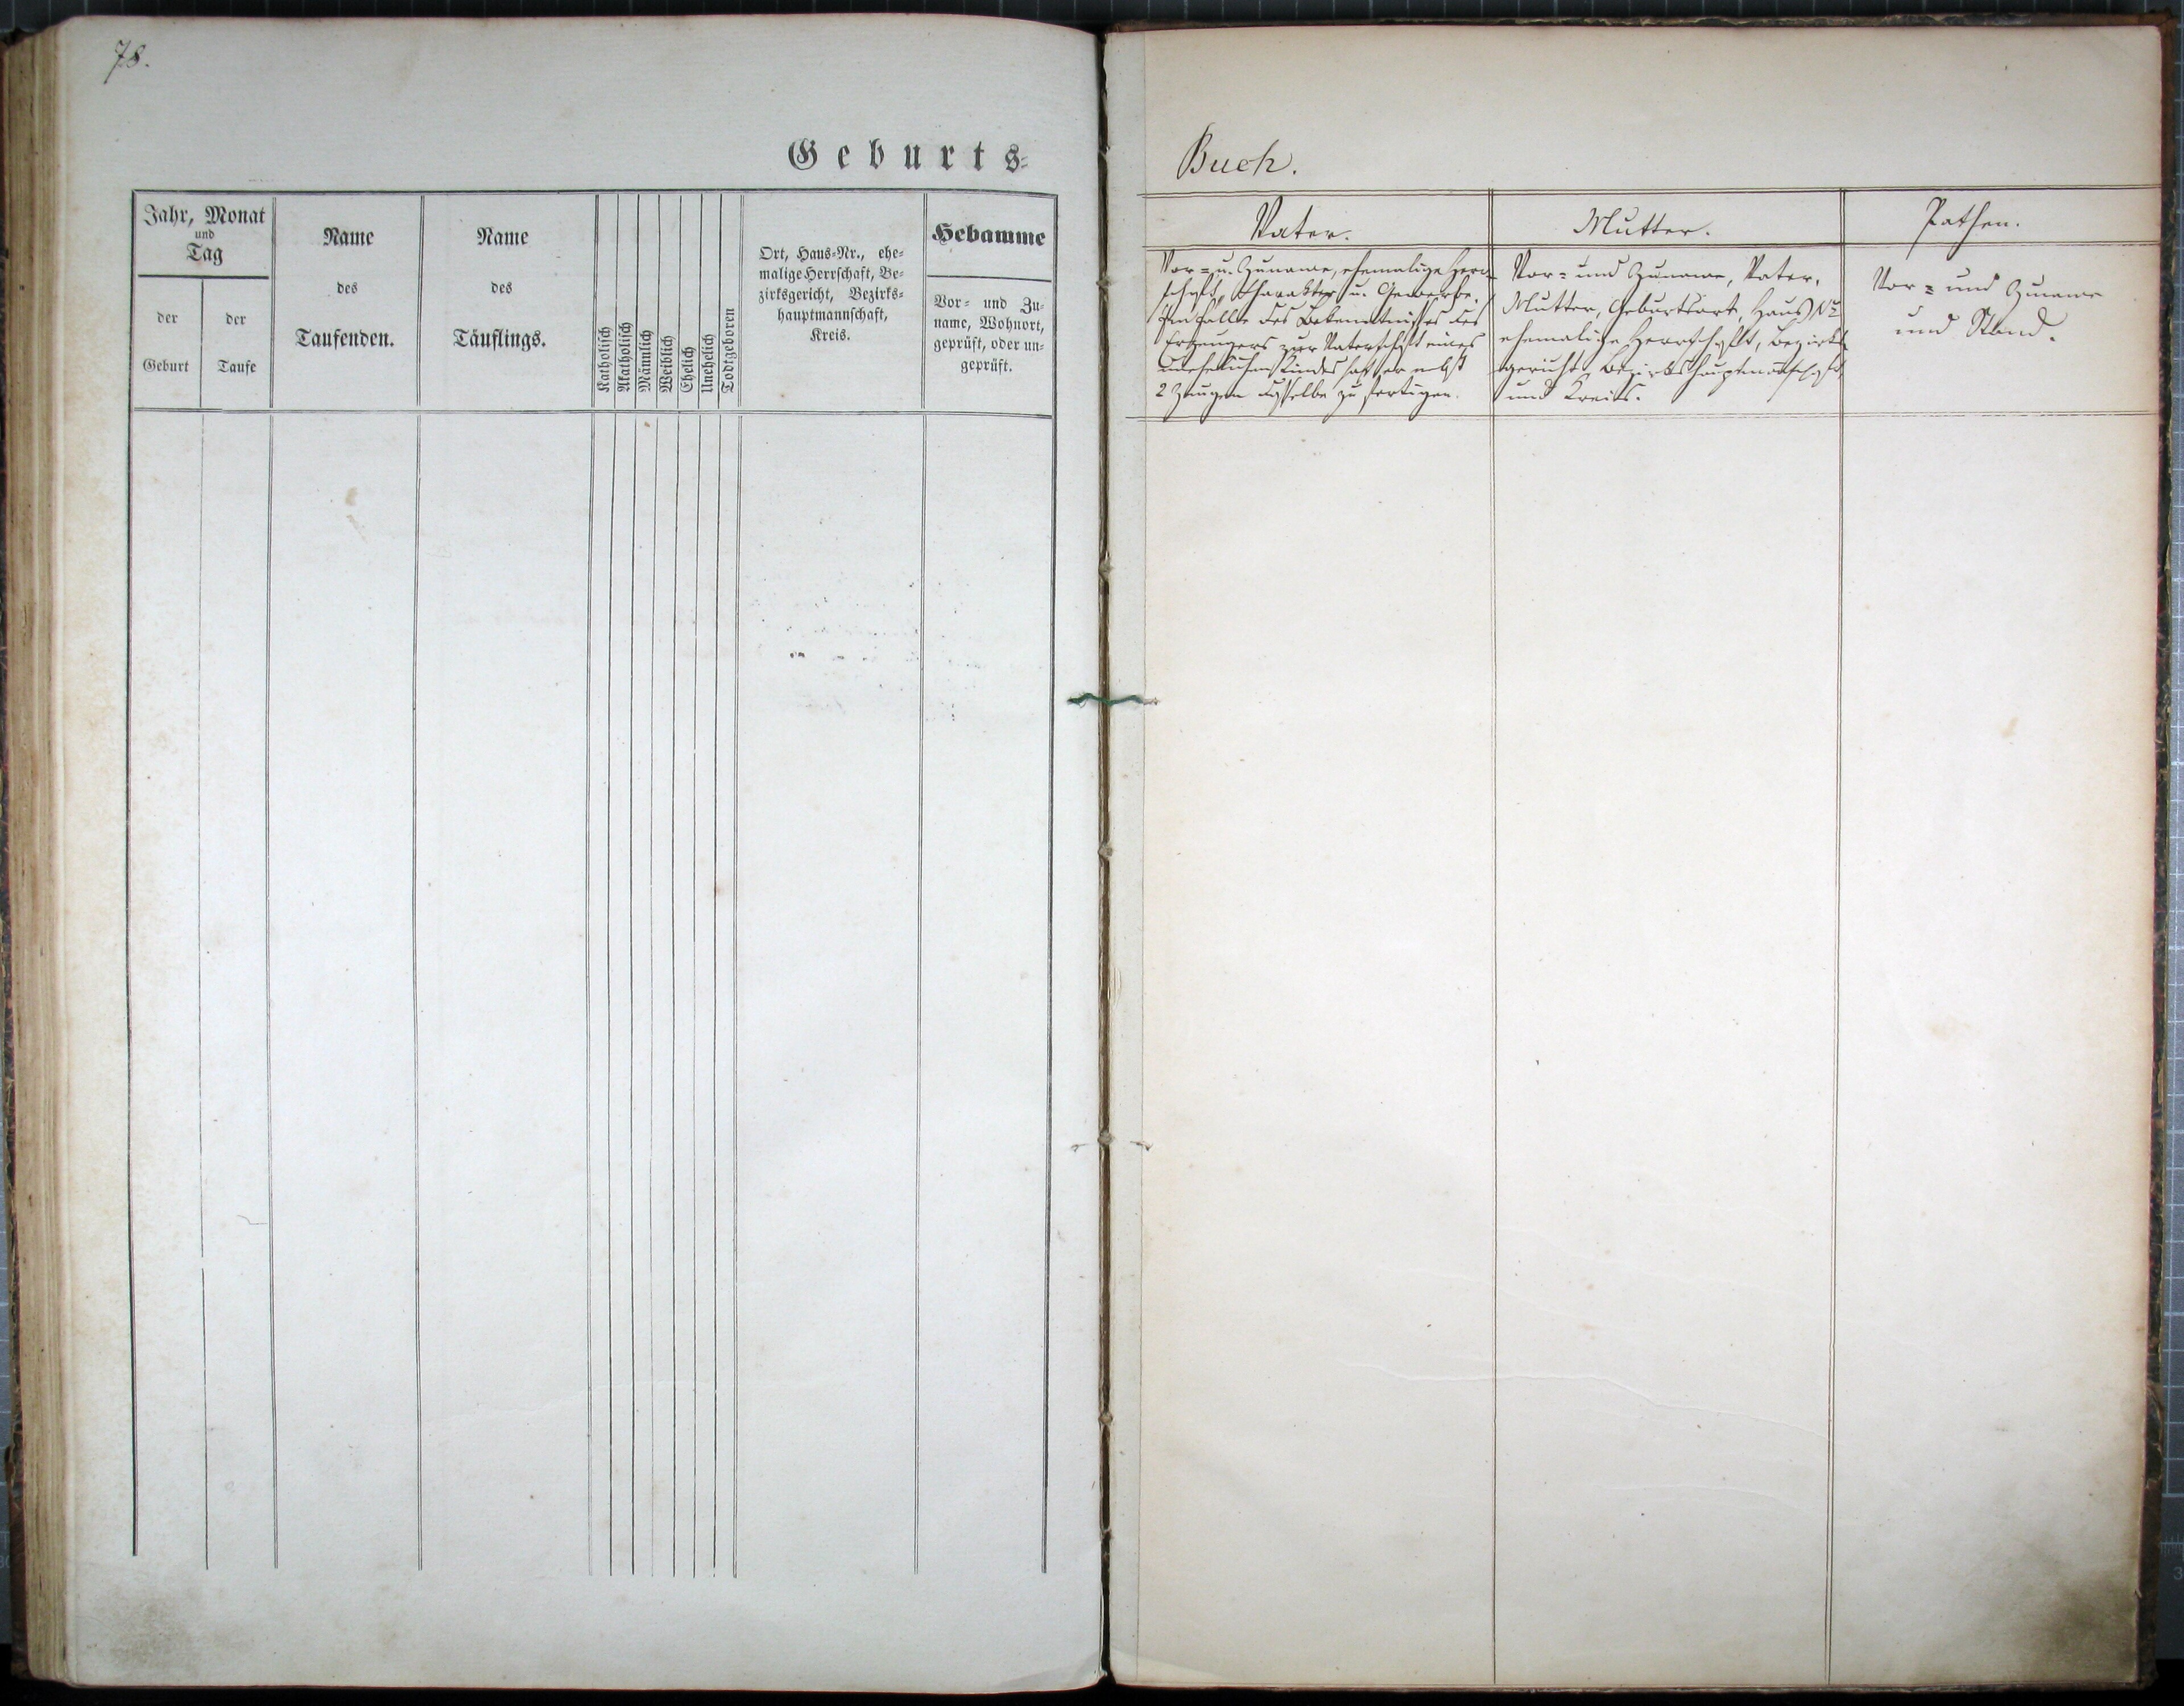 78.
Geburts-
Jahr, Monat
und
Tag
der
Geburt
der
Taufe
Name
des
Taufenden.
Name
des
Täuflings.
Katholisch
Akatholisch
Männlich
Weiblich
Ehelich
Unehelich
Todtgeboren
Ort, Haus-Nr., ehe-
malige Herrschaft, Be-
zirksgericht, Bezirks-
hauptmannschaft,
Kreis.
Hebamme
Vor- und Zu-
name, Wohnort,
geprüft, oder un-
geprüft.
Buch.
Vater.
Vor- u. Zuname, ehemalige Herr-
schaft, Charakter u. Gewerbe.
Im Falle des Bekenntnisses des
Erzeugers zur Vaterschaft eines
unehelichen Kindes hat er nebst
2 Zeugen dasselbe zu fertigen.
Mutter.
Vor- und Zuname, Vater,
Mutter, Geburtsort, Haus Nr.
ehemalige Herrschaft, Bezirks-
gericht, Bezirkshauptmannschaft,
und Kreis.
Pathen.
Vor- und Zuname
und Stand.